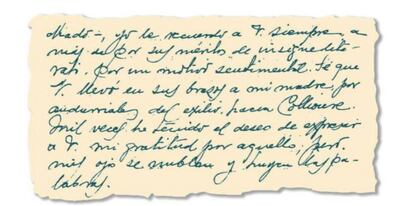 Machado–, yo le recuerdo a V. siempre, a
más de por sus méritos de insigne lite-
rato. Por un motivo sentimental. Sé que
V. llevó en sus brazos a mi madre, por
andurriales del exilio, hacia Collioure.
Mil veces he tenido el deseo de expresar
a V. mi gratitud por aquello; pero
mis ojos se nublan y huyen las pa-
labras.